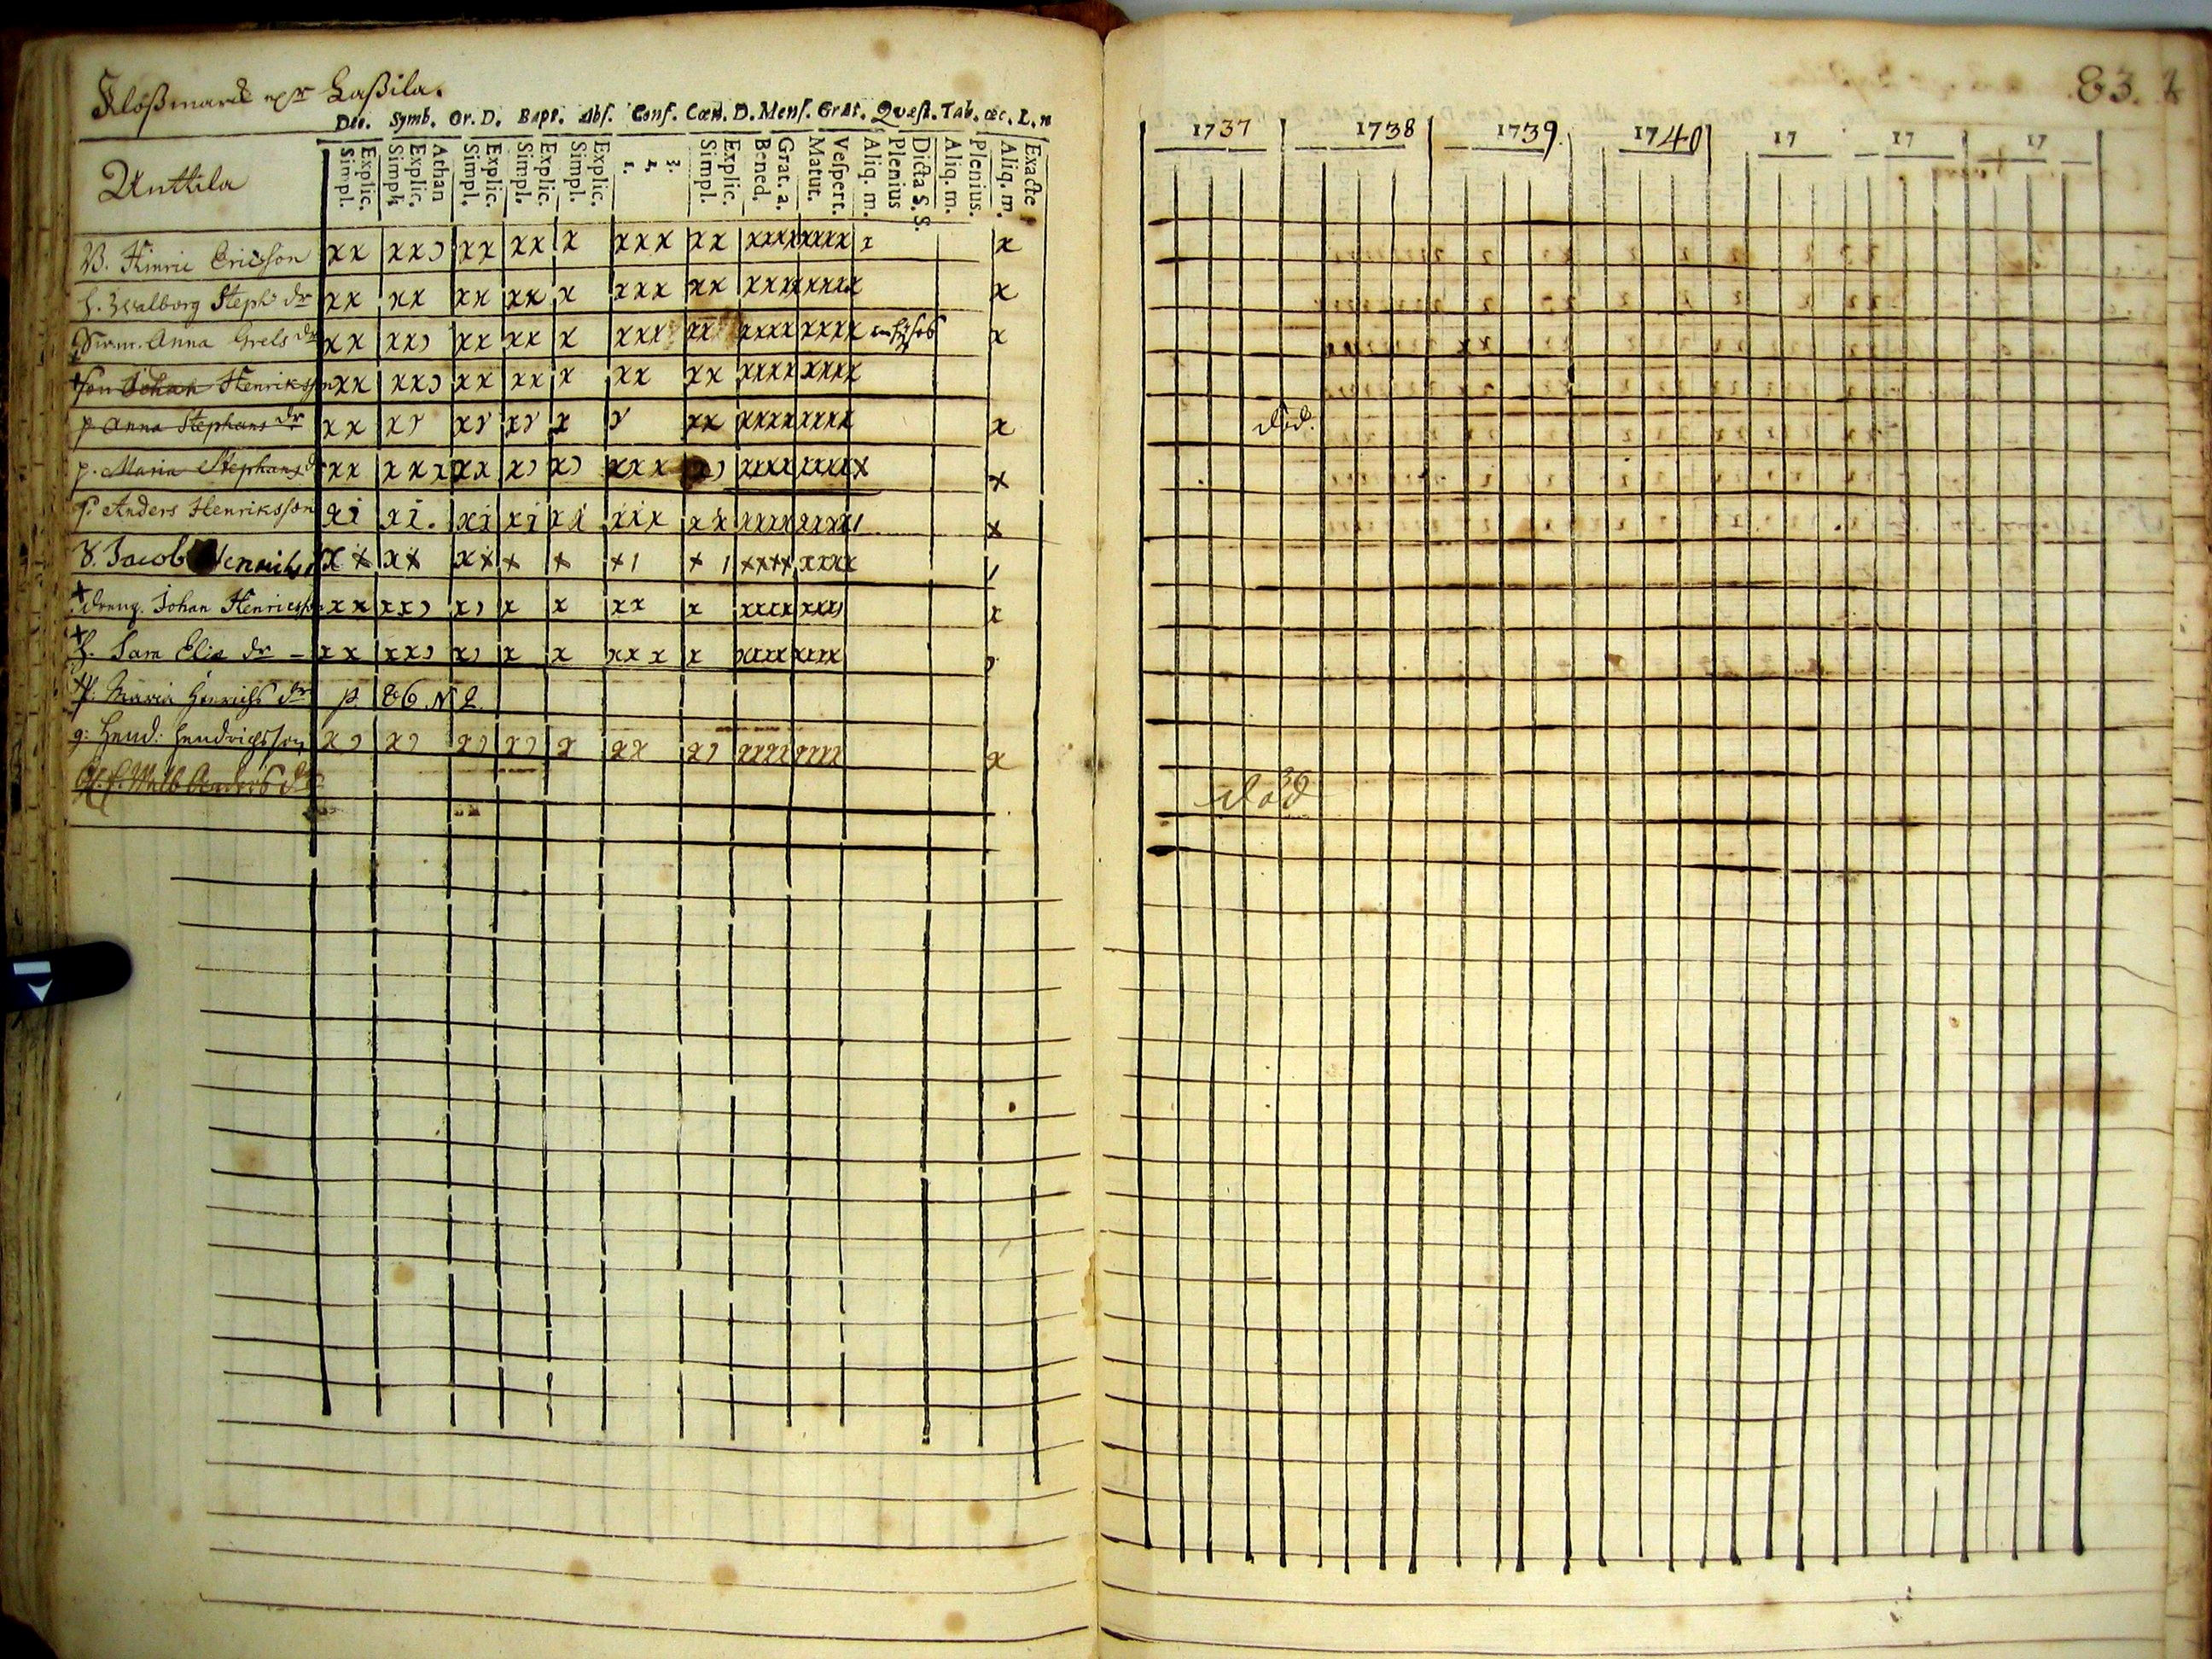 Klåßmark eps Laßila.
Dec. Symb. Or. D. Bapt. Abs. Conf. Cœn. D. Mens. Grat. Quæst. Tab. œc. L. n
Unttila
Simpl. Explic. Simpl. Explic. Athan Simpl. Explic. Simpl. Explic. Simpl. Explic. 1. 2. 3. Simpl. Explic. Bened. Grat. a. Matut. Vespert. Aliq. m. Plenius Dicta S. S. Aliq. m. Plenius. Aliq. m. Exacte
B. Hinric Ericsson xx xx) xx xx x xxx xx xxxx xxxx x x
h. Walborg Steph dr xx xx xx xx x xxx xx xxxx xxxx x
Anna Grels dr xx xx) xx xx x xxx xx xxxx xxxx x
son Johan Henriksson xx xx) xx xx x xx xx xxxx xxxx
p Anna Stephans dr xx x) x) x) x xx xxxx xxxx x
p. Maria Stephans d xx xxx xx x) x) xxx xxxx xxxxx x
Anders Henriksson xi xi. xi xi xi xxx xx xxxx xxxx x
Jacob xx xx xx x x x1 x 1 xxxx xxxx 1
+ dreng. Johan Henricsson xx xx) x) x x xx x xxxx xxx) x
+ h. Sara Elia dr – xx xx) x) x x xxx x xxxx xxxx )
+ P. Maria Henrichs dr p. 86. N 2.
g: Hend: Hendrichsson x) x) x) x) x xx x) xxxx xxxx x
Walb Anders dr
83.
1737 1738 1739. 1740 17 17 17
död.
död